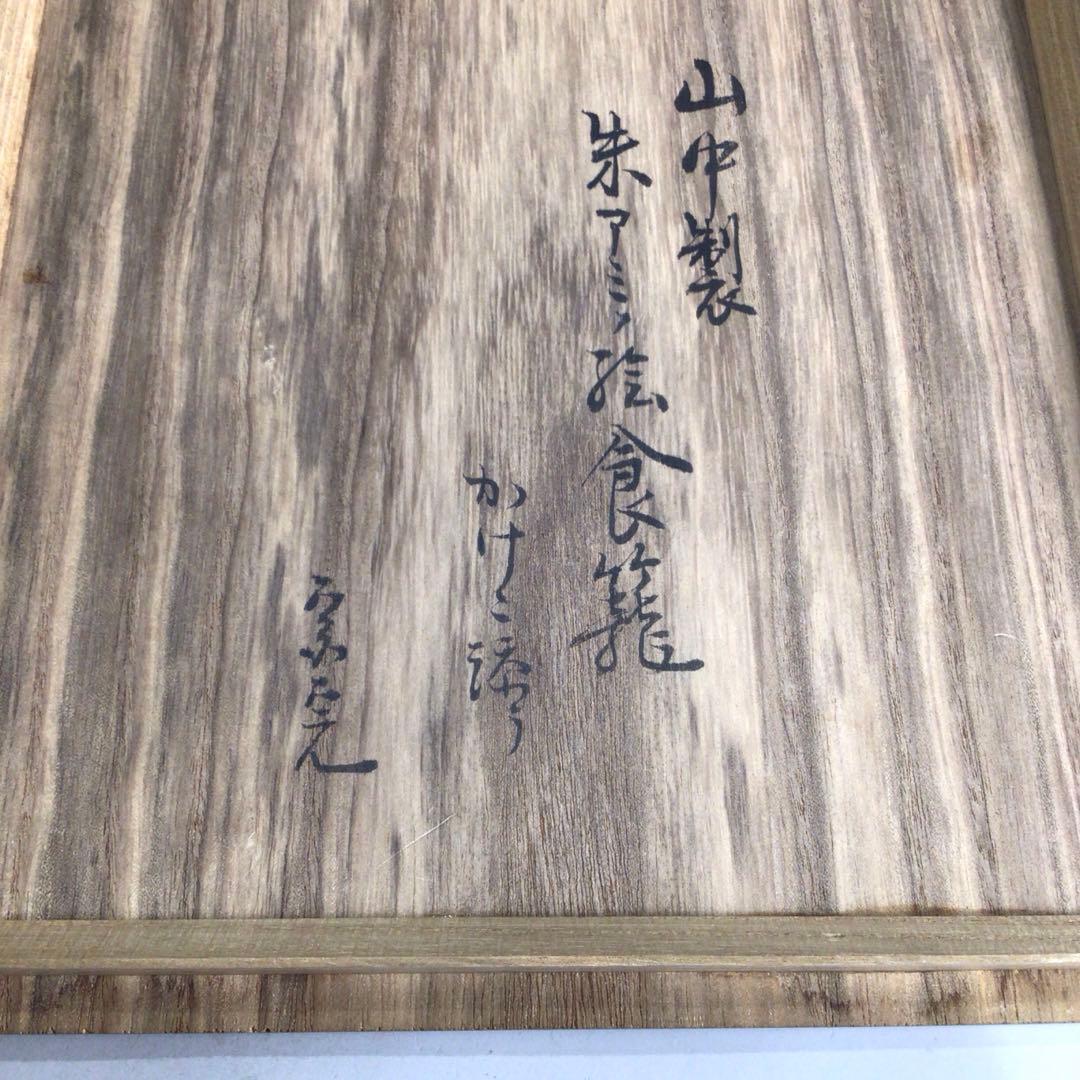 山中製
朱アミ絵食籠
かけこ添う